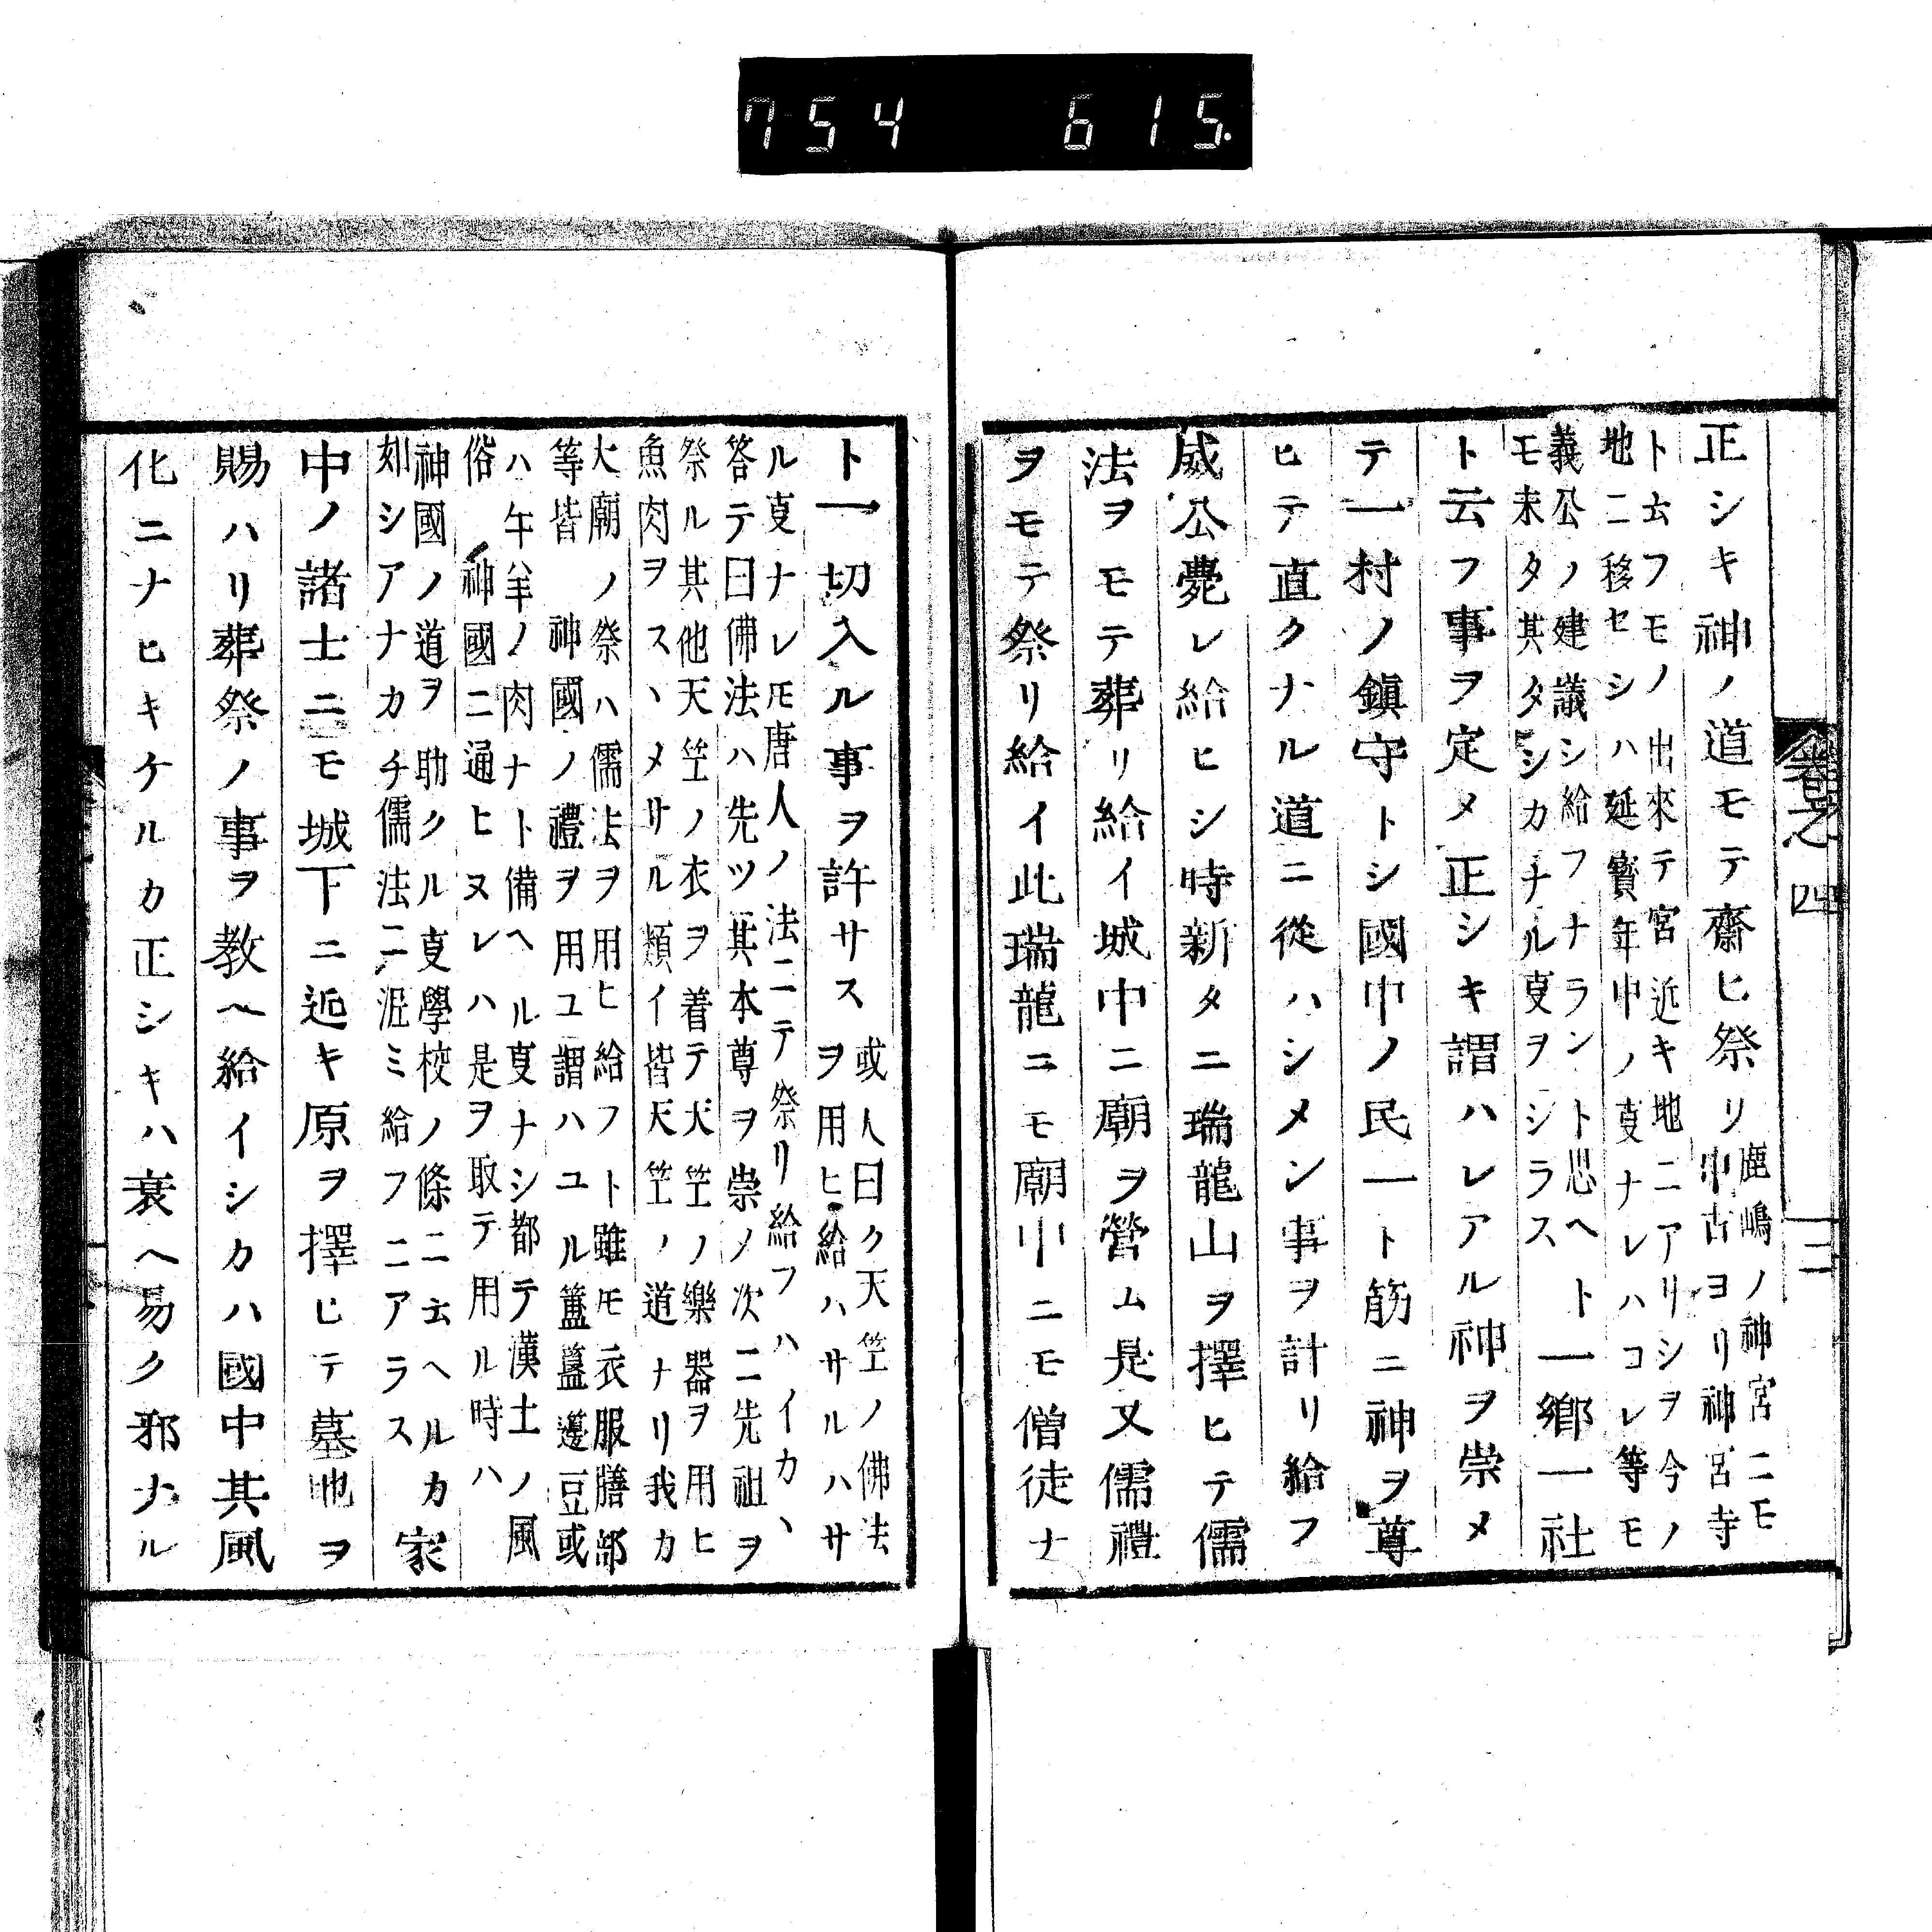 754 615.
巻之四
三
正シキ神ノ道モテ齋ヒ祭リ
鹿嶋ノ神宮ニモ
中古ヨリ神宮寺
ト云フモノ出來テ宮近キ地ニアリシヲ今ノ
地ニ移セシハ延寳年中ノ㕝ナレハコレ等モ
義公ノ建議シ給フナラント思ヘト
モ未タ其タシカナル㕝ヲシラス
一鄉一社
ト云フ事ヲ定メ正シキ謂ハレアル神ヲ崇メ
テ一村ノ鎮守トシ國中ノ民一ト筋ニ神ヲ尊
ヒテ直クナル道ニ從ハシメン事ヲ計リ給フ
威公薨レ給ヒシ時新タニ瑞龍山ヲ擇ヒテ儒
法ヲモテ葬リ給イ城中ニ廟ヲ營ム是又儒禮
ヲモテ祭リ給イ此瑞龍ニモ廟中ニモ僧徒ナ
ト一切入ル事ヲ許サス
或人曰ク天竺ノ佛法
ヲ用ヒ給ハサルハサ
ル㕝ナレモ唐人ノ法ニテ祭リ給フハイカヽ
答テ曰佛法ハ先ツ其本尊ヲ崇メ次ニ先祖ヲ
祭ル其他天竺ノ衣ヲ着テ天竺ノ樂器ヲ用ヒ
魚肉ヲスヽメサル類イ皆天竺ノ道ナリ我カ
大廟ノ祭ハ儒法ヲ用ヒ給フト雖モ衣服膳部
等皆 神國ノ禮ヲ用ユ謂ハユル簠簋籩豆或
ハ午羊ノ肉ナト備ヘル㕝ナシ都テ漢土ノ風
俗 神國ニ通ヒヌレハ是ヲ取テ用ル時ハ
神國ノ道ヲ助クル㕝學校ノ條ニ云ヘルカ
如シアナカチ儒法ニ泥ミ給フニアラス
家
中ノ諸士ニモ城下ニ近キ原ヲ擇ヒテ墓地ヲ
賜ハリ葬祭ノ事ヲ教ヘ給イシカハ國中其風
化ニナヒキケルカ正シキハ衰ヘ易ク邪ナル